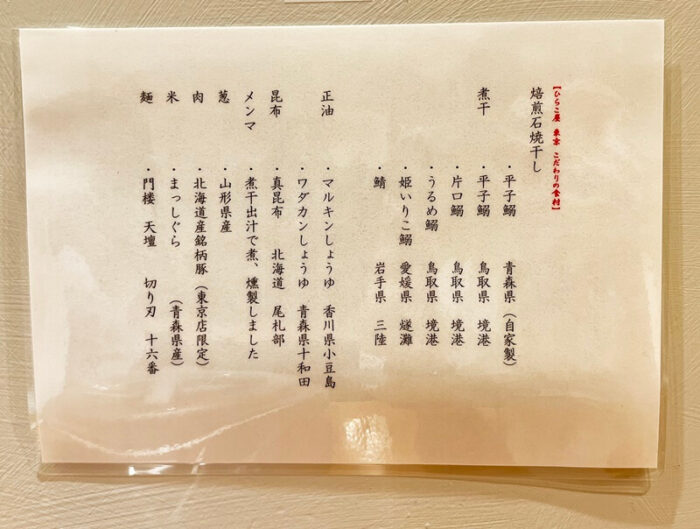 【ひらこ屋 東京 こだわりの食材】
焙煎石焼干し
・平子鰯 青森県(自家製)
煮干 ・平子鰯 鳥取県 境港
・片口鰯 鳥取県 境港
・うるめ鰯 鳥取県 境港
・姫いりこ鰯 愛媛県 燧灘
・鯖 岩手県 三陸
正油 ・マルキンしょうゆ 香川県小豆島
・ワダカンしょうゆ 青森県十和田
昆布 ・真昆布 北海道 尾札部
メンマ ・煮干出汁で煮、燻製しました
葱 ・山形県産
肉 ・北海道産銘柄豚(東京店限定)
米 ・まっしぐら (青森県産)
麺 ・門楼 天壇 切り刃 十六番